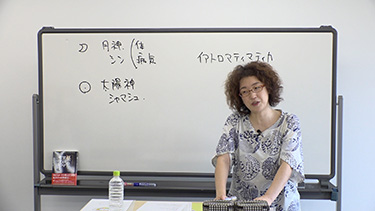 月神
シン
体
病気
イアトロマティマティカ
太陽神
シャマシュ.